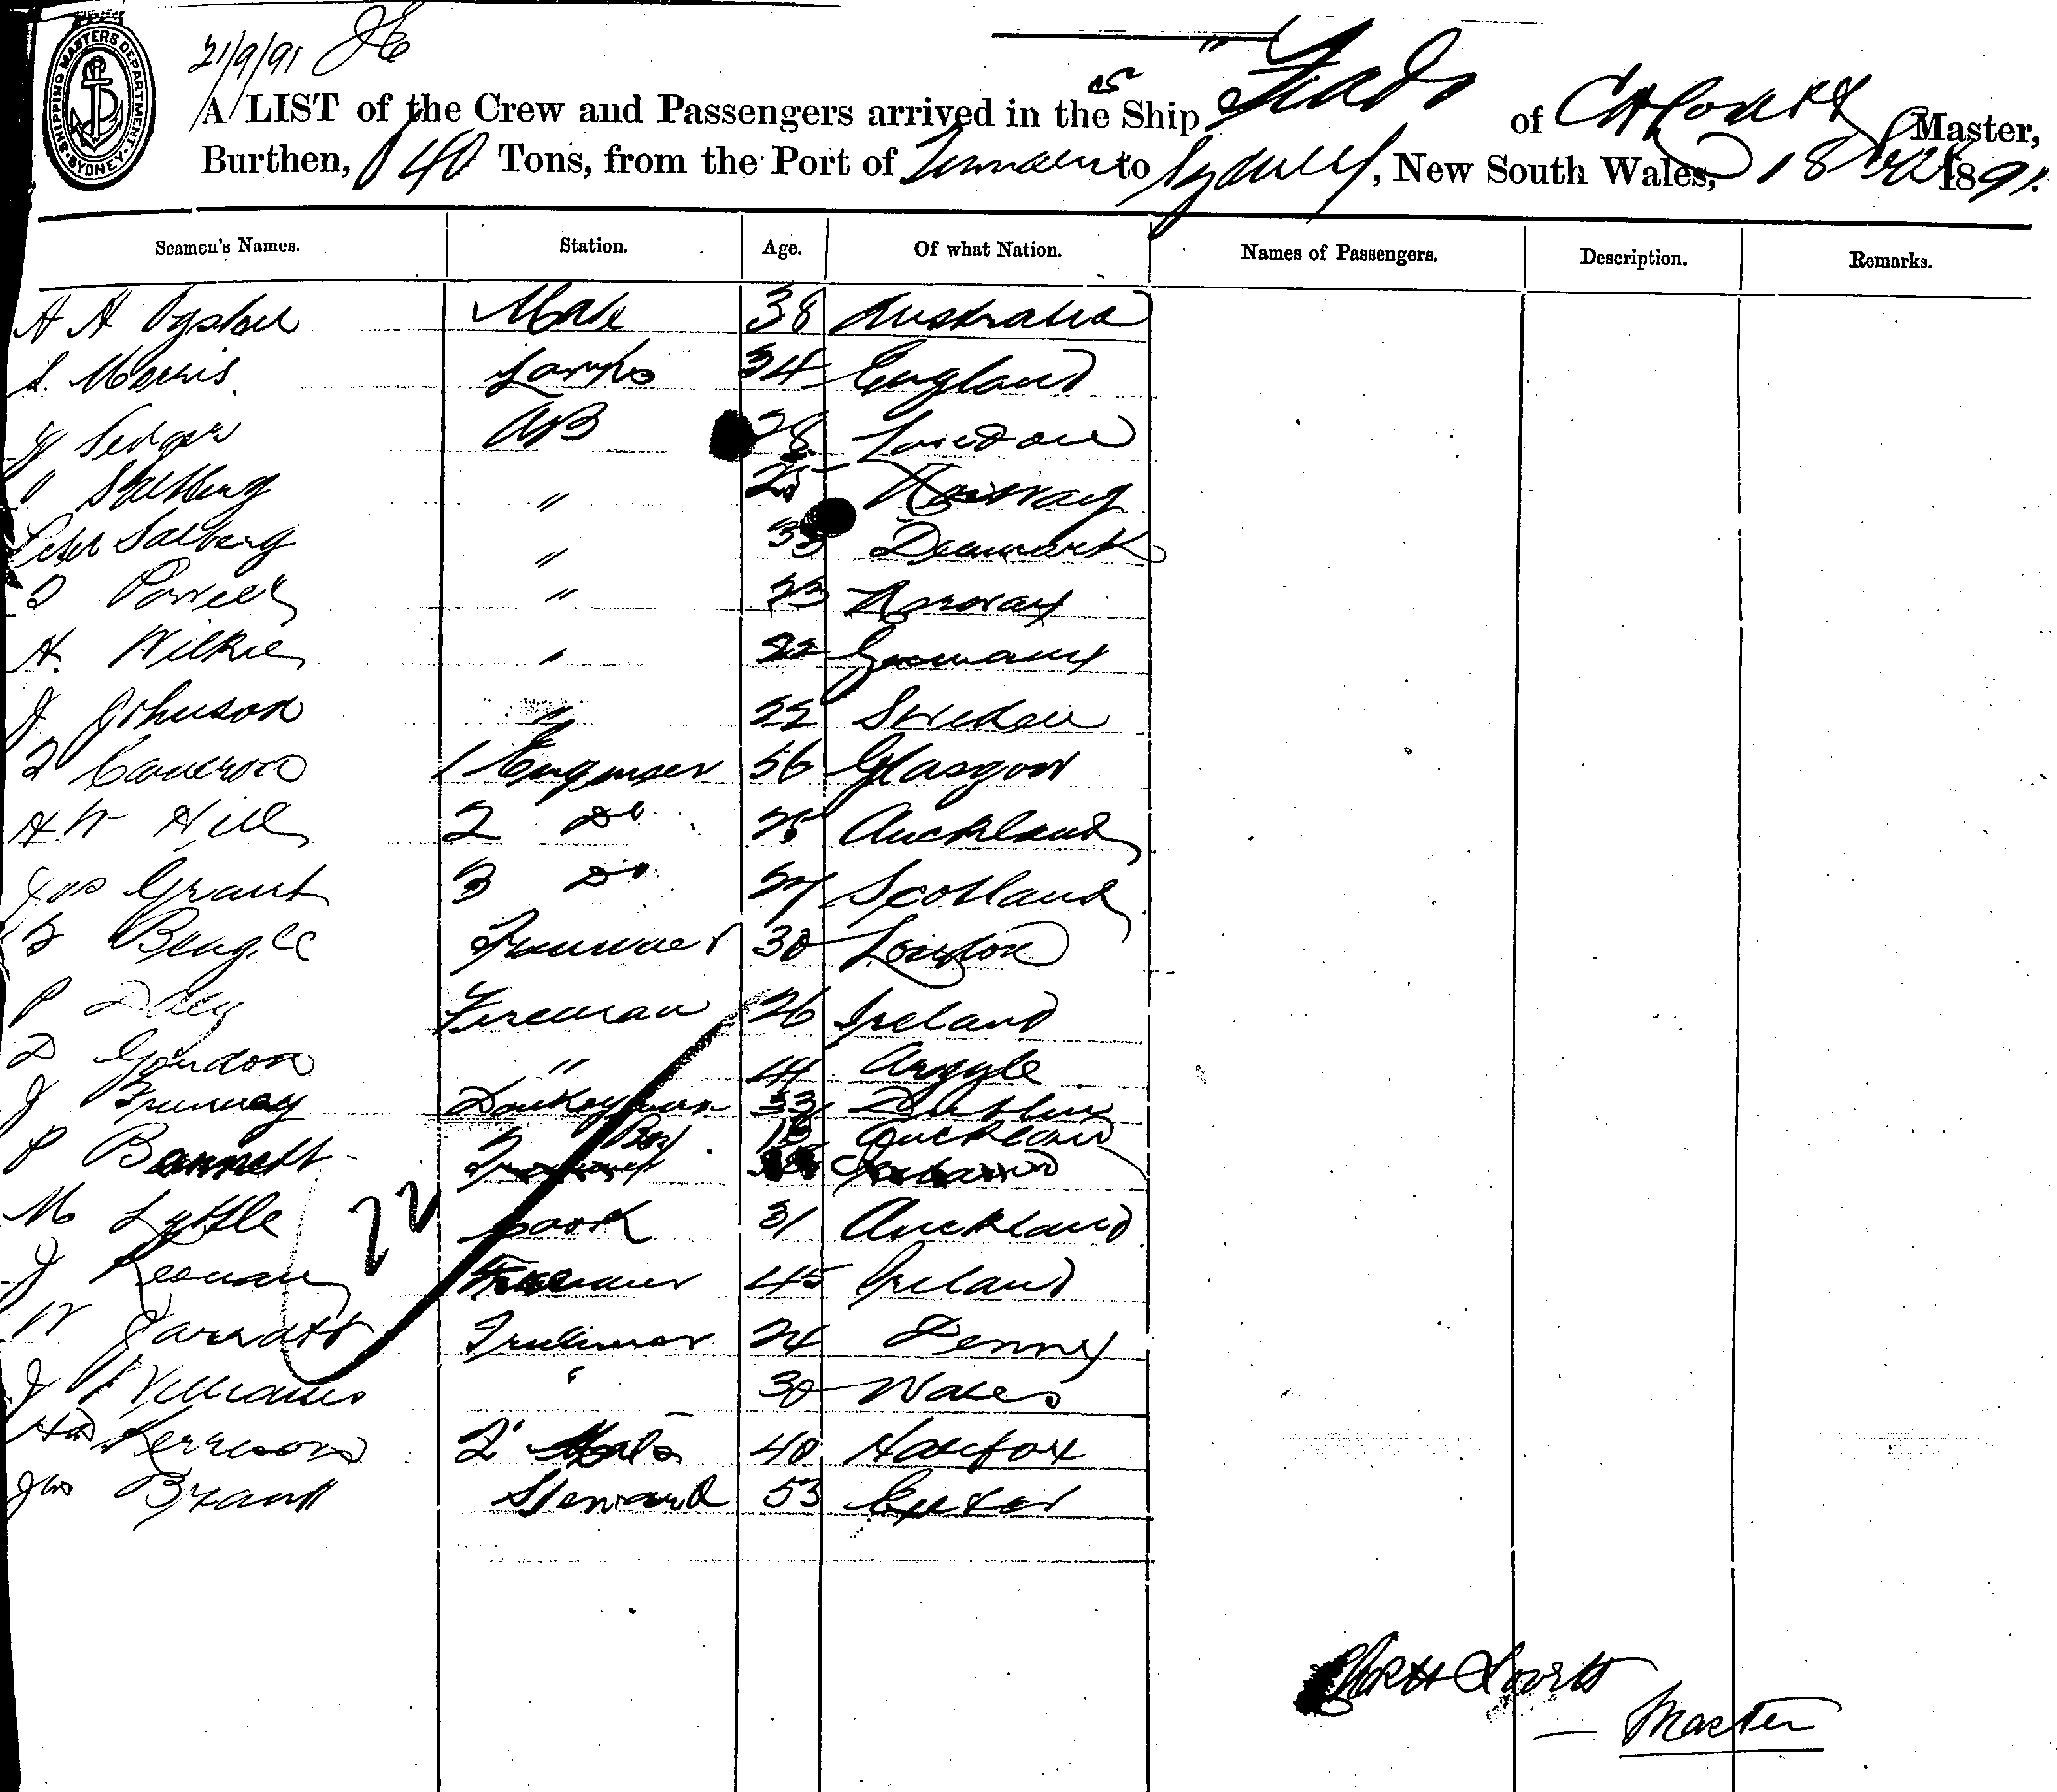 21/9/91
SHIPPING MASTERS DEPARTMENT. SYDNEY
A LIST of the Crew and Passengers arrived in the SS Ship of Master,
Burthen, 840 Tons, from the Port of to Sydney, New South Wales, 18 1891.
Seamen's Names. Station. Age. Of what Nation. Names of Passengers. Description. Remarks.
A A Mate 38 Australia
S. Morris Lamps 34 England
J Sedger AB 28 London
" 25 Norway
Peter Salberg " 33 Denmark
" 23 Norway
A. Wilkie " 22 Germany
J Johnson " 22 Sweden
Cameron 1 Engineer 56 Glasgow
A W Hill 2 Do Auckland
Jas Grant 3 Do 27 Scotland
30 London
P Daly Fireman 26 Ireland
D Gordon " 44 Argyle
J Donkeyman 33 Dublin
P Bennett Boy 18 Auckland
M Lyttle Cook 31 Auckland
22
J Keenan 45 Ireland
W Jarratt Trimmer 24 Denny
J Williams " 30 Wales
2 Mate 40 Halifax
Jas Bryant Steward 53 Exeter
Master